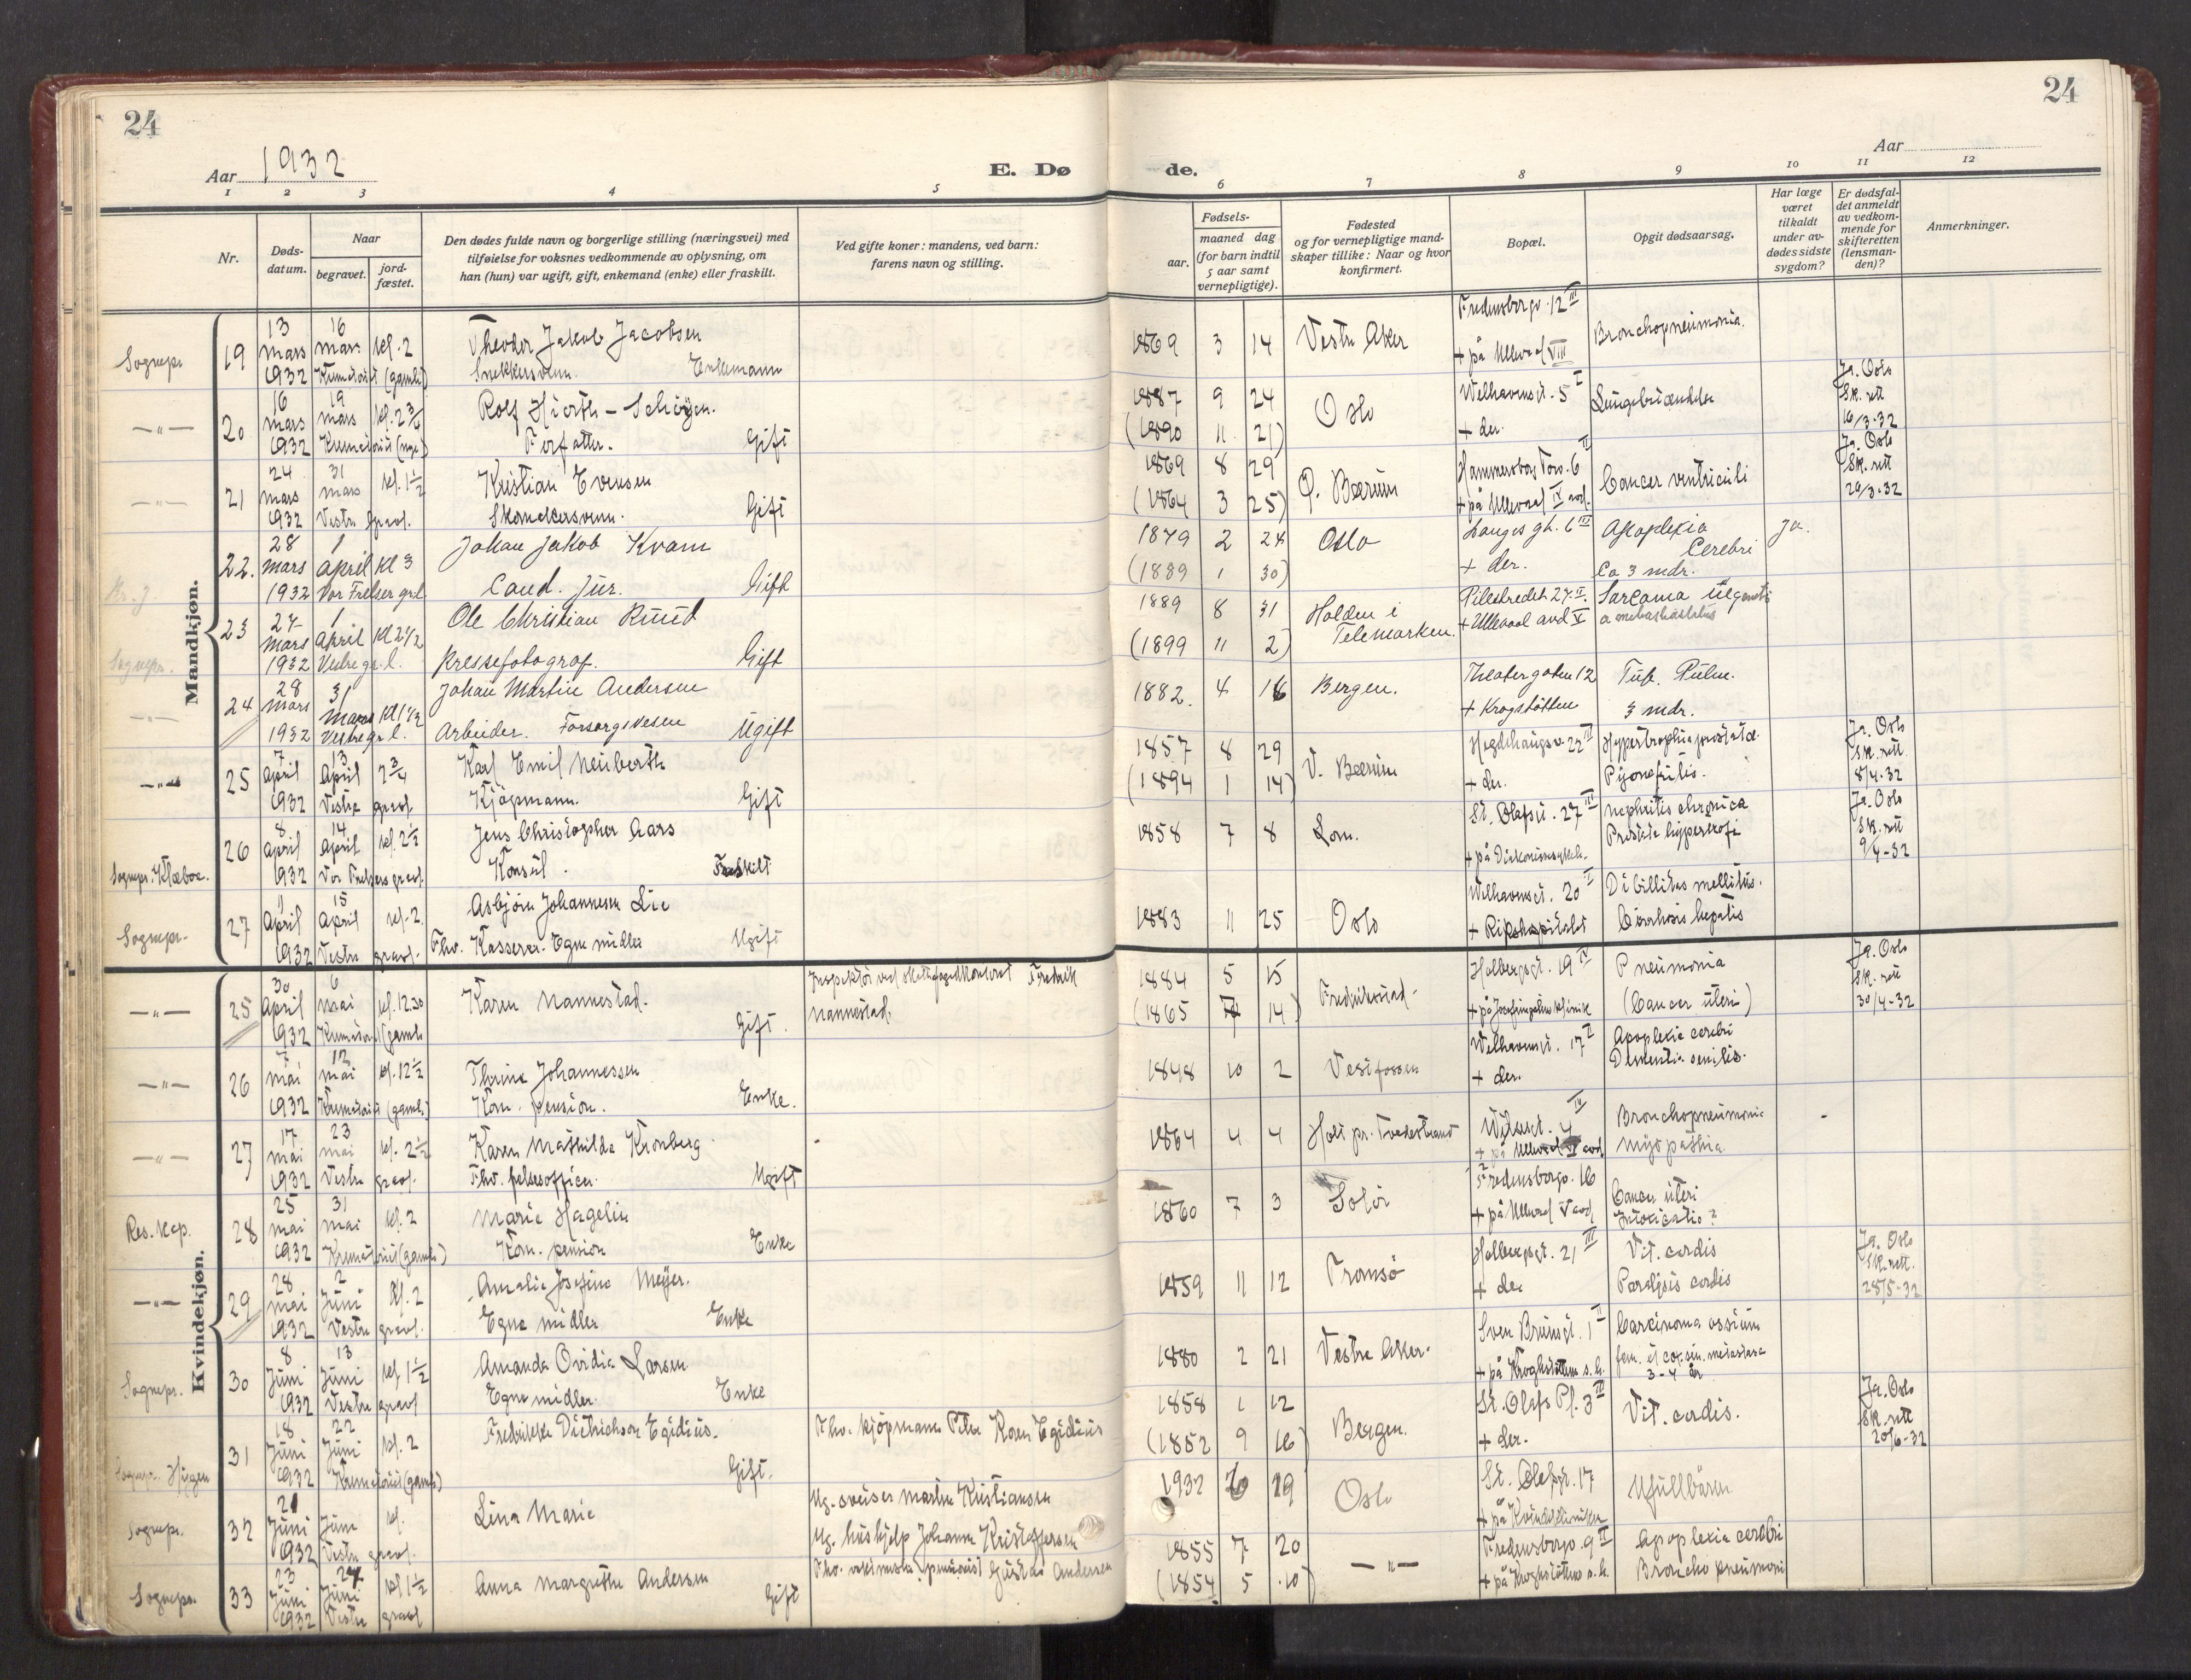 24
Aar 1932
E. Dø
1 2 3 4 5
Nr.
Døds-
datum.
Naar
begravet.
jord-
fæstet.
Den dødes fulde navn og borgerlige stilling (næringsvei) med
tilføielse for voksnes vedkommende av oplysning, om
han (hun) var ugift, gift, enkemand (enke) eller fraskilt.
Ved gifte koner: mandens, ved barn:
farens navn og stilling.
Mandkjøn.
13 16
Sognepr. 19 mars mars kl. 2 Theodor Jakob Jacobsen
1932 Krematoriet (gamle) Snekkersvenn. Enkemann
16 19
—„— 20 mars mars kl. 2 3/4 Rolf Hjorth-Schøyen.
1932 Krematoriet (nye) Forfatter. Gift
24 31
—„— 21 mars mars kl. 1 1/2 Kristian Evensen
1932 Vestre gravl. Skomakersvenn. Gift
28 1
22. mars april kl 3 Johan Jakob Kvam
1932 Vor Frelser grl. Cand. jur. Gift
27 1
23 mars april kl 2 1/2 Ole Christian Ruud
Sognepr. 1932 Vestre gr. l. Pressefotograf. Gift
28 31
—„— 24 mars mars kl 1 1/2 Johan Martin Andersen
1932 Vestre gr. l. Arbeider. Forsorgsvesen Ugift
7 13
—„— 25 april april 2 3/4 Karl Emil Neuberth
1932 Vestre gravl. Kjøpmann. Gift
8 14
26 april april kl. 2 1/2 Jens Christopher Aars
Sognepr. Klæboe. 1932 Vor Frelsers gravl. Konsul. Fraskilt
15
Sognepr. 27 April April kl. 2. Asbjørn Johannesen Lie
1932 Vestre gravl. Fhv. Kasserer. Egne midler Ugift
Kvindekjøn.
30 6
—„— 25 April mai kl. 12.30 Karen Nannestad. Fredrik
1932 Krematoriet (gamle) Gift. Nannestad.
7 12
—„— 26 mai mai kl. 12 1/2 Thrine Johannessen
1932 Krematoriet (gamle) Kom. pension. Enke.
17 23
—„— 27 mai mai kl. 2 1/2 Karen Mathilde Kronberg
1932 Vestre gravl. Fhv. Ugift
25 31
Res. kap. 28 mai mai kl. 2 Marie Hagelin
1932 Krematoriet (gamle) Kom. pension Enke
28 2
—„— 29 mai Juni kl. 2 Amalie Josefine Meyer.
1932 Vestre gravl. Egne midler Enke
8 13
Sognepr. 30 Juni Juni kl 1 1/2 Amanda Ovidia Larsen
1932 Vestre gravl Egne midler. Enke
18 22
31 Juni Juni kl. 2 Fredrikke Dietrichson Egidius. Fhv. kjøpmann Peter Koren Egidius
Sognepr. Hygen 1932 Krematoriet (gamle) Gift.
21
Sognepr. 32 Juni Juni kl. Lina Marie Ug. sveiser Martin Kristiansen
1932 Vestre gravl. Ug. hushjelp Johanne Kristoffersen
23 27
Sognepr. 33 Juni Juni kl 1 1/2 Anna Margrethe Andersen Fhv. (pensionist) Gustav Andersen
1932 Vestre gravl Gift
24
Aar
de.
6 7 8 9 10 11 12
Fødsels-
aar.
maaned dag
(for barn indtil
5 aar samt
vernepligtige).
Fødested
og for vernepligtige mand-
skaper tillike: Naar og hvor
konfirmert.
Bopæl.
Opgit dødsaarsag.
Har læge
været
tilkaldt
under av-
dødes sidste
sygdom?
Er dødsfal-
det anmeldt
av vedkom-
mende for
skifteretten
(lensman-
den)?
Anmerkninger.
Fredensborgv. 12 III
1869 3 14 Vestre Aker Bronchopneumonia.
+ på Ullevaal VIII
1887 9 24 Oslo Welhavensgt. 5 I Lungebetændelse Ja. Oslo
Sk. rett
(1890 11 21) + der. 16/3-32
1869 8 29 Ø. Bærum Hammersborg Torv. 6 II Cancer ventriculi Ja. Oslo
Sk. rett
(1864 3 25) + på Ullevaal IV avd. 29/3-32
1879 2 24 Oslo Langes gt. 6 III Apoplexia Cerebri Ja.
(1889 1 30) + der. Ca 3 mdr.
1889 8 31 Holden i Pilestredet 27. II. Sarcoma
(1899 11 2) Telemarken. + Ullevaal avd V
1882. 4 16 Bergen. Theatergaten 12 Tub. Pulm.
+ Krogstøtten 3 mdr.
1857 8 29 V. Bærum Hegdehaugsv. 22 II Hypertrophia prostatae Ja. Oslo
Sk. rett.
(1894 1 14) + der. 8/4-32
1858 7 8 Lom. St. Olafsgt. 27 III Nephritis chronica Ja. Oslo
Sk. rett
9/4-32
1883 11 25 Oslo Welhavensgt. 20 I mellitus.
+ Rikshospitalet Cirrhosis hepatis
1884 5 15 Fredrikstad Holbergsgt. 19 IV Pneumonia Ja. Oslo
Sk. rett
(1865 14) (Cancer uteri) 30/4-32
1848 10 2 Vestfossen Welhavensgt. 17 I Apoplexia cerebri
+ der. Dementia senilis.
1864 4 4 Holt pr. Tvedestrand 4 IV Bronchopneumonia
+ på Ullevaal VI avd Myopathia
1860 7 3 Solør Fredensborgv. 16 Cancer uteri
+ på Ullevaal V avd Intoxicatio?
1859 11 12 Tromsø Holbergsgt. 21 III Vit. cordis Ja. Oslo
Sk. rett.
+ der Paralysis cordis 28/5-32
1880 2 21 Vestre Aker. Sven Brunsgt. 1 II Carcinoma ossium
+ på Kroghstøtten s.h. 3-4 år
1858 1 12 Bergen. St. Olafs Pl. 3 II Vit. cordis. Ja. Oslo
Sk. rett
(1852 9 16) + der. 20/6-32
1932 6 19 Oslo St. Olafsgt. 17 Ufullbåren
+ på Kvindeklinikken
1855 7 20 —„— Fredensborgv. 9 II Apoplexia cerebri
(1854 5 10) + på Kroghstøtten s.h. Broncho pneumoni